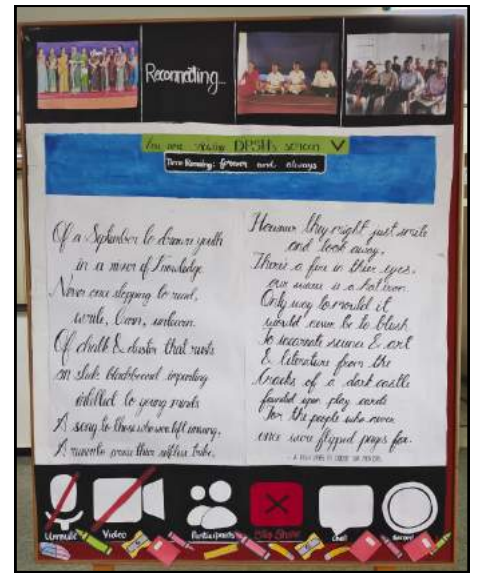 Reconnecting...
You are viewing DPSH's screen
Time Remaining: forever and always
Of a September to drown youth
in a river of Knowledge.
Never once stopping to read,
write, learn, unlearn.
Of chalk & duster that rusts
on slick blackboard imparting
intellect to young minds
A song to those who are left unsung,
A raven to praise their selfless tribe.
However they might just smile
and look away,
There's a fire in their eyes,
our is a hot iron.
Only way to mould it
would never be to blush
To incarnate science & art
& literature from the
cracks of a dark castle
founded upon play cards
For the people who never
once were flipped pages for.
Unmute
Video
Participants
Stop Share
Chat
Record